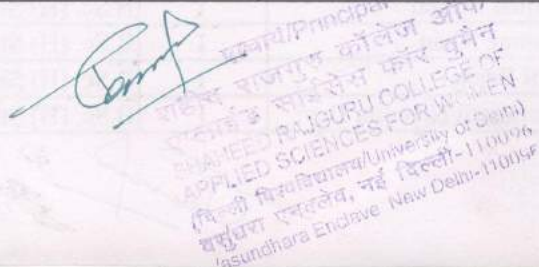 प्राचार्य/Principal
शहीद राजगुरु कॉलेज ऑफ
एप्लाईड साईंसेस फॉर वुमेन
SHAHEED RAJGURU COLLEGE OF
APPLIED SCIENCES FOR WOMEN
(दिल्ली विश्वविद्यालय/University of Delhi)
वसुंधरा एनक्लेव, नई दिल्ली-110096
Vasundhara Enclave New Delhi-110096